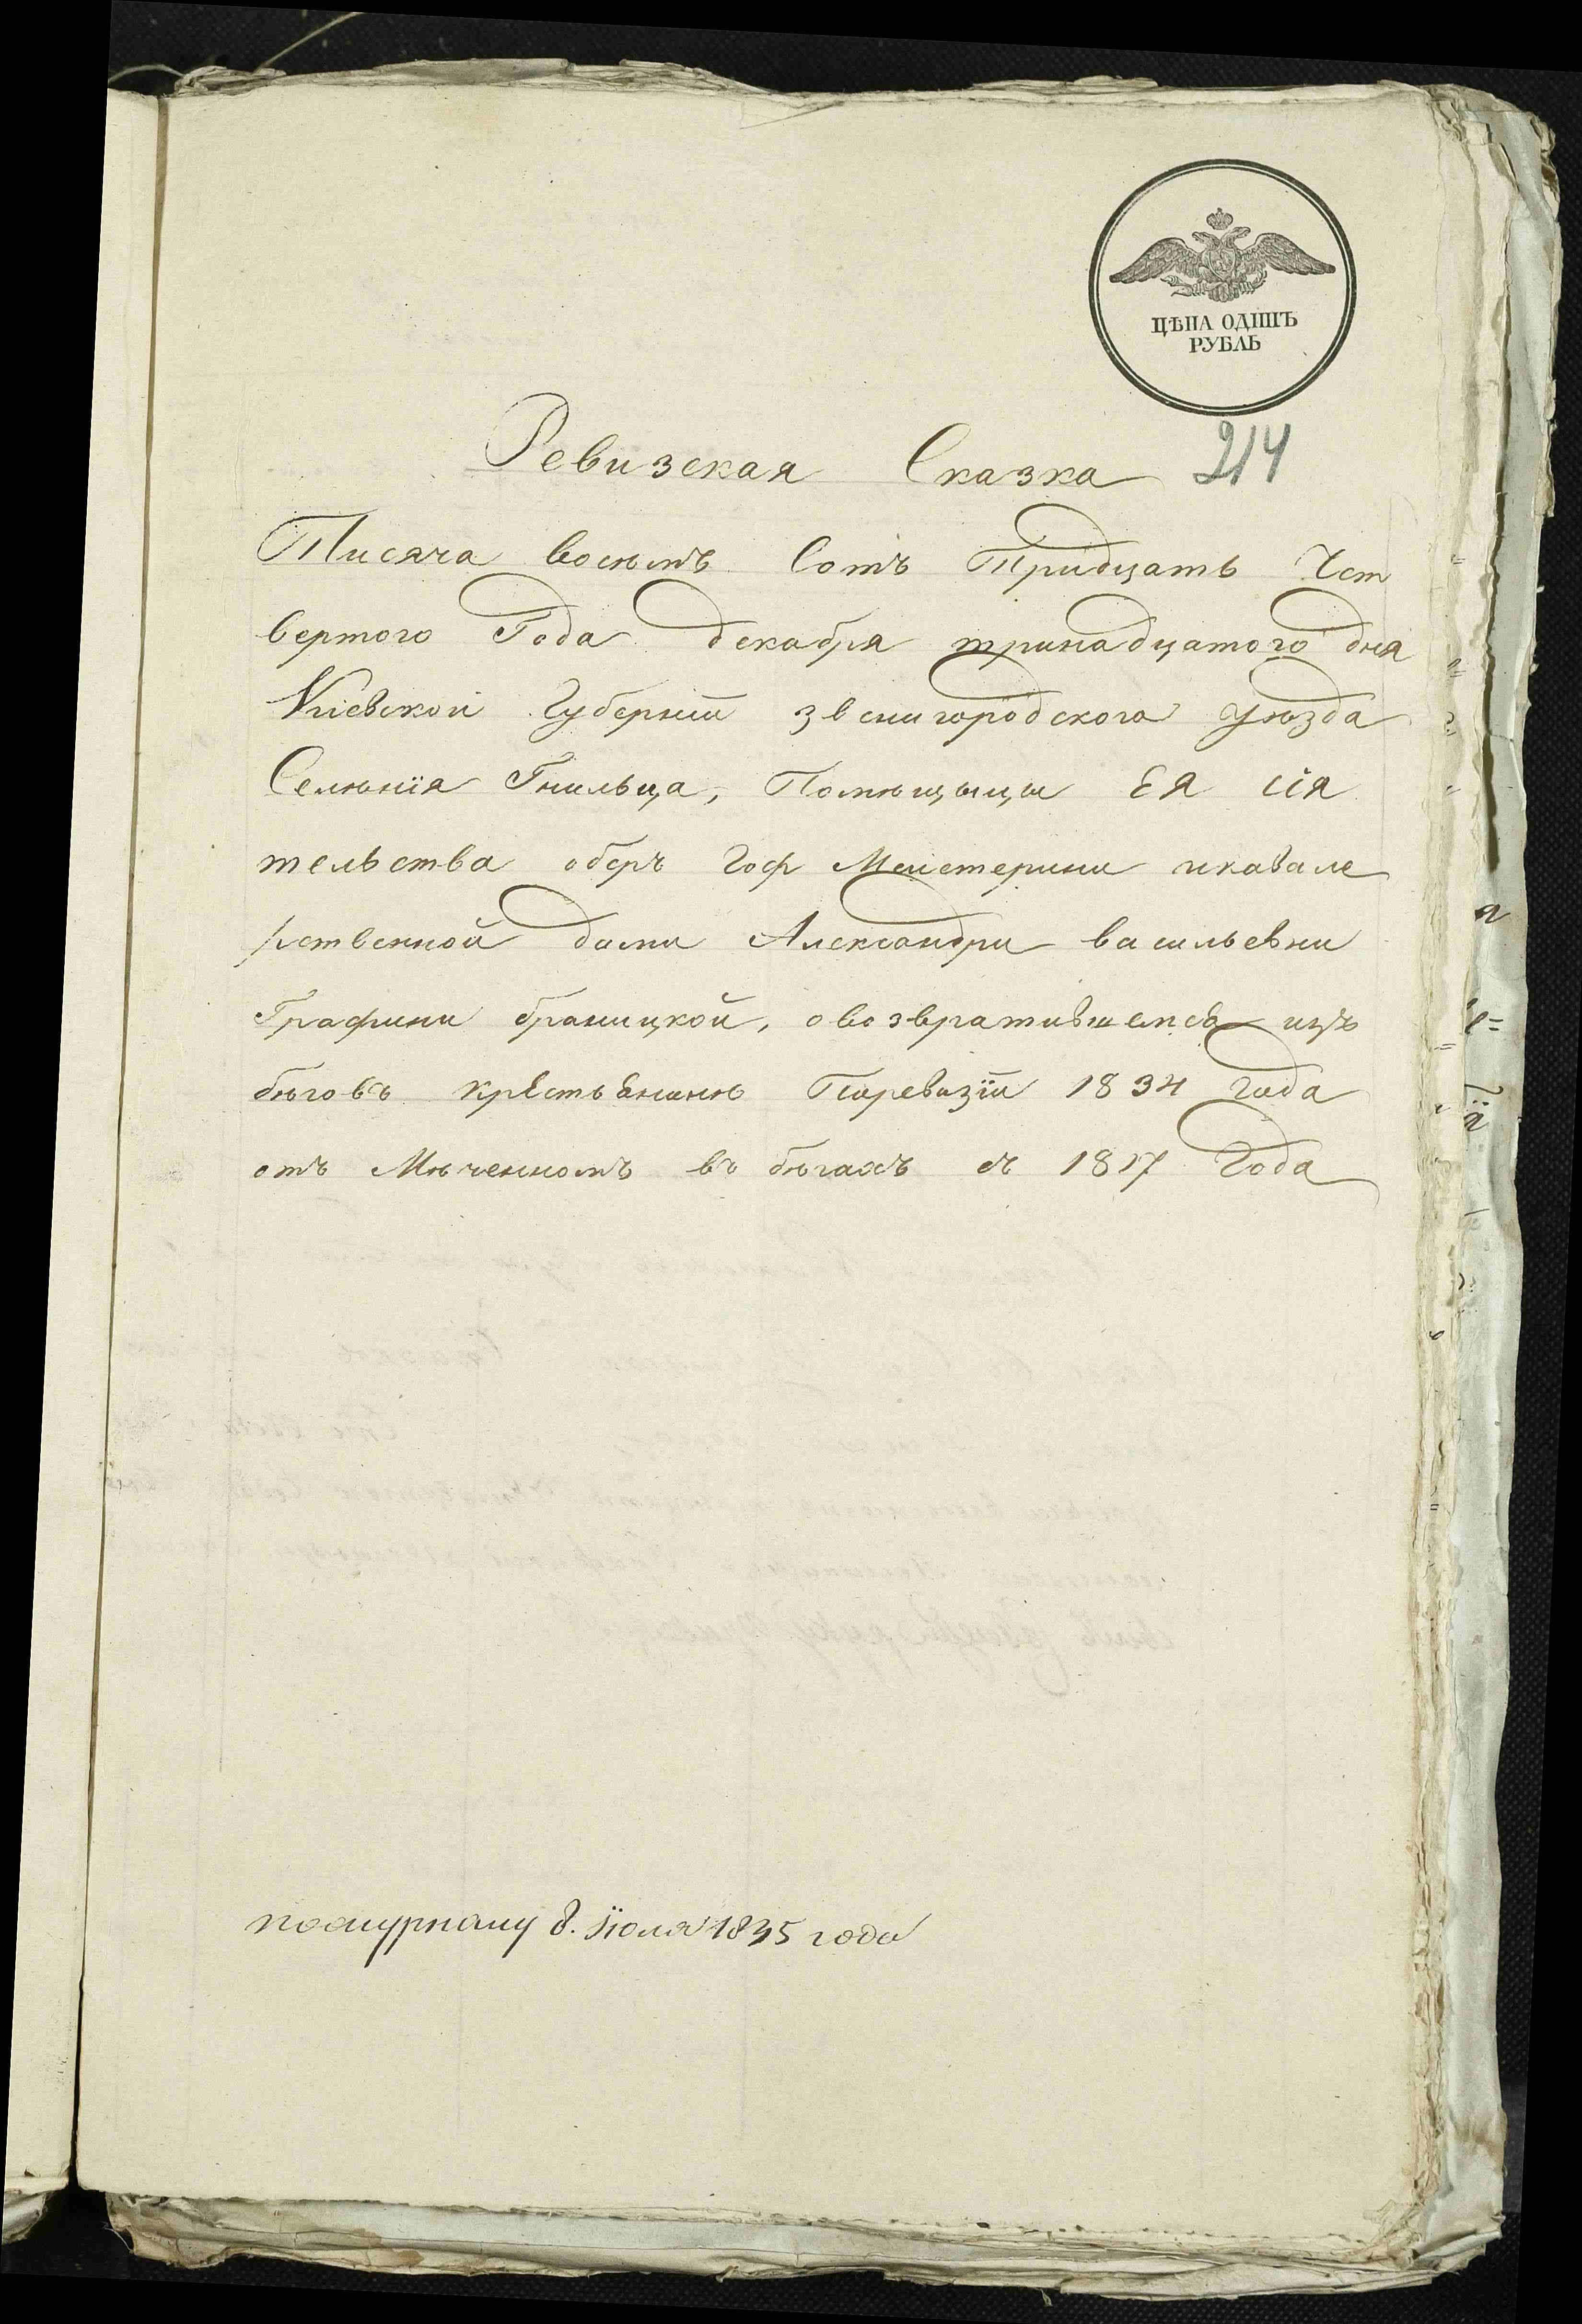 ЦѢНА ОДИНЪ
РУБЛЬ
Ревизская Сказка 214
Тисяча восѣмъ Сотъ Тридцать Чет
вертого Года декабря тринадцатого дня
Кіевской Губерніи звенигородского уѣзда
Селѣнія Гнильца, Помѣщыцы ЕЯ сія
тельства оберъ Гоф Мейстерини икавале
рственной дамы Александри васильевни
Графини браницкой, овозвратившемся изъ
бѣговъ крестьянинѣ Поревизіи 1834 года
отъ Мѣченномъ въ бѣгахъ съ 1817 Года
пожурналу 8. Іюля 1835 года